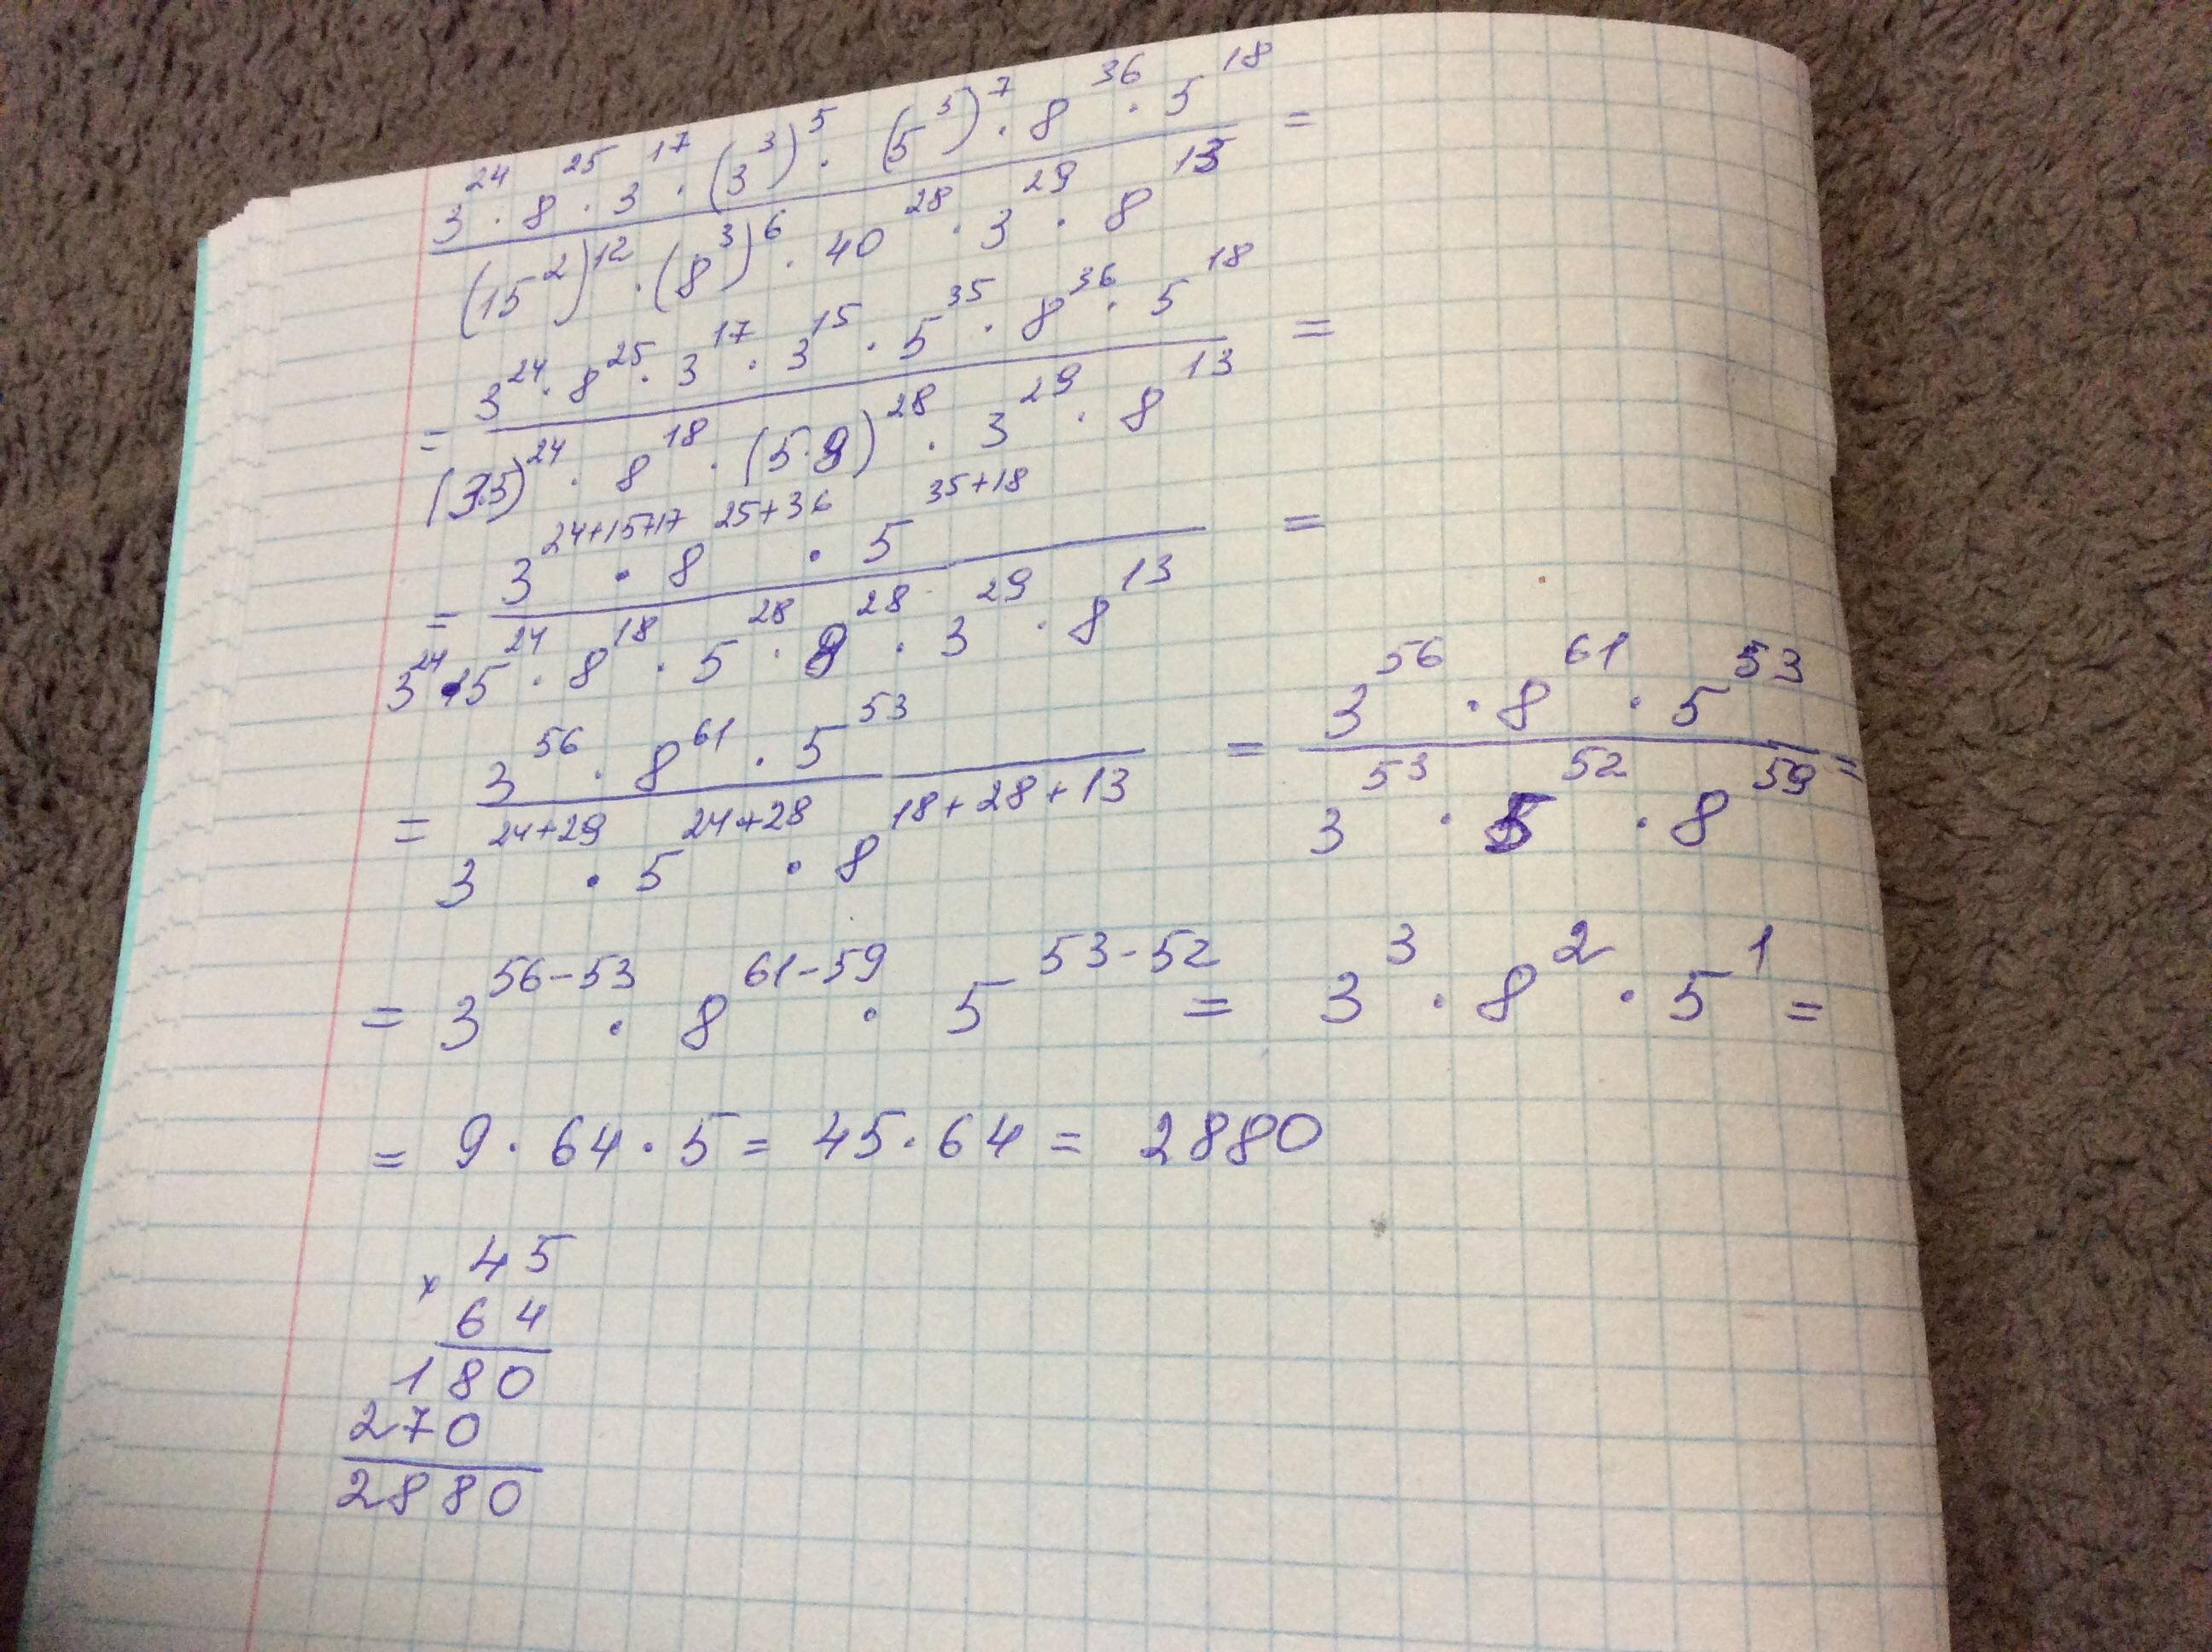 3^24 · 8^25 · 3^17 · (3^3)^5 · (5^5)^7 · 8^36 · 5^18 =
(15^2)^12 · (8^3)^6 · 40^28 · 3^29 · 8^13
= 3^24 · 8^25 · 3^17 · 3^15 · 5^35 · 8^36 · 5^18 =
(3·5)^24 · 8^18 · (5·8)^28 · 3^29 · 8^13
= 3^24+15+17 · 8^25+36 · 5^35+18 =
3^24 · 5^24 · 8^18 · 5^28 · 8^28 · 3^29 · 8^13
= 3^56 · 8^61 · 5^53 = 3^56 · 8^61 · 5^53 =
3^24+29 · 5^24+28 · 8^18+28+13 3^53 · 5^52 · 8^59
= 3^56-53 · 8^61-59 · 5^53-52 = 3^3 · 8^2 · 5^1 =
= 9 · 64 · 5 = 45 · 64 = 2880
45
×
64
180
270
2880